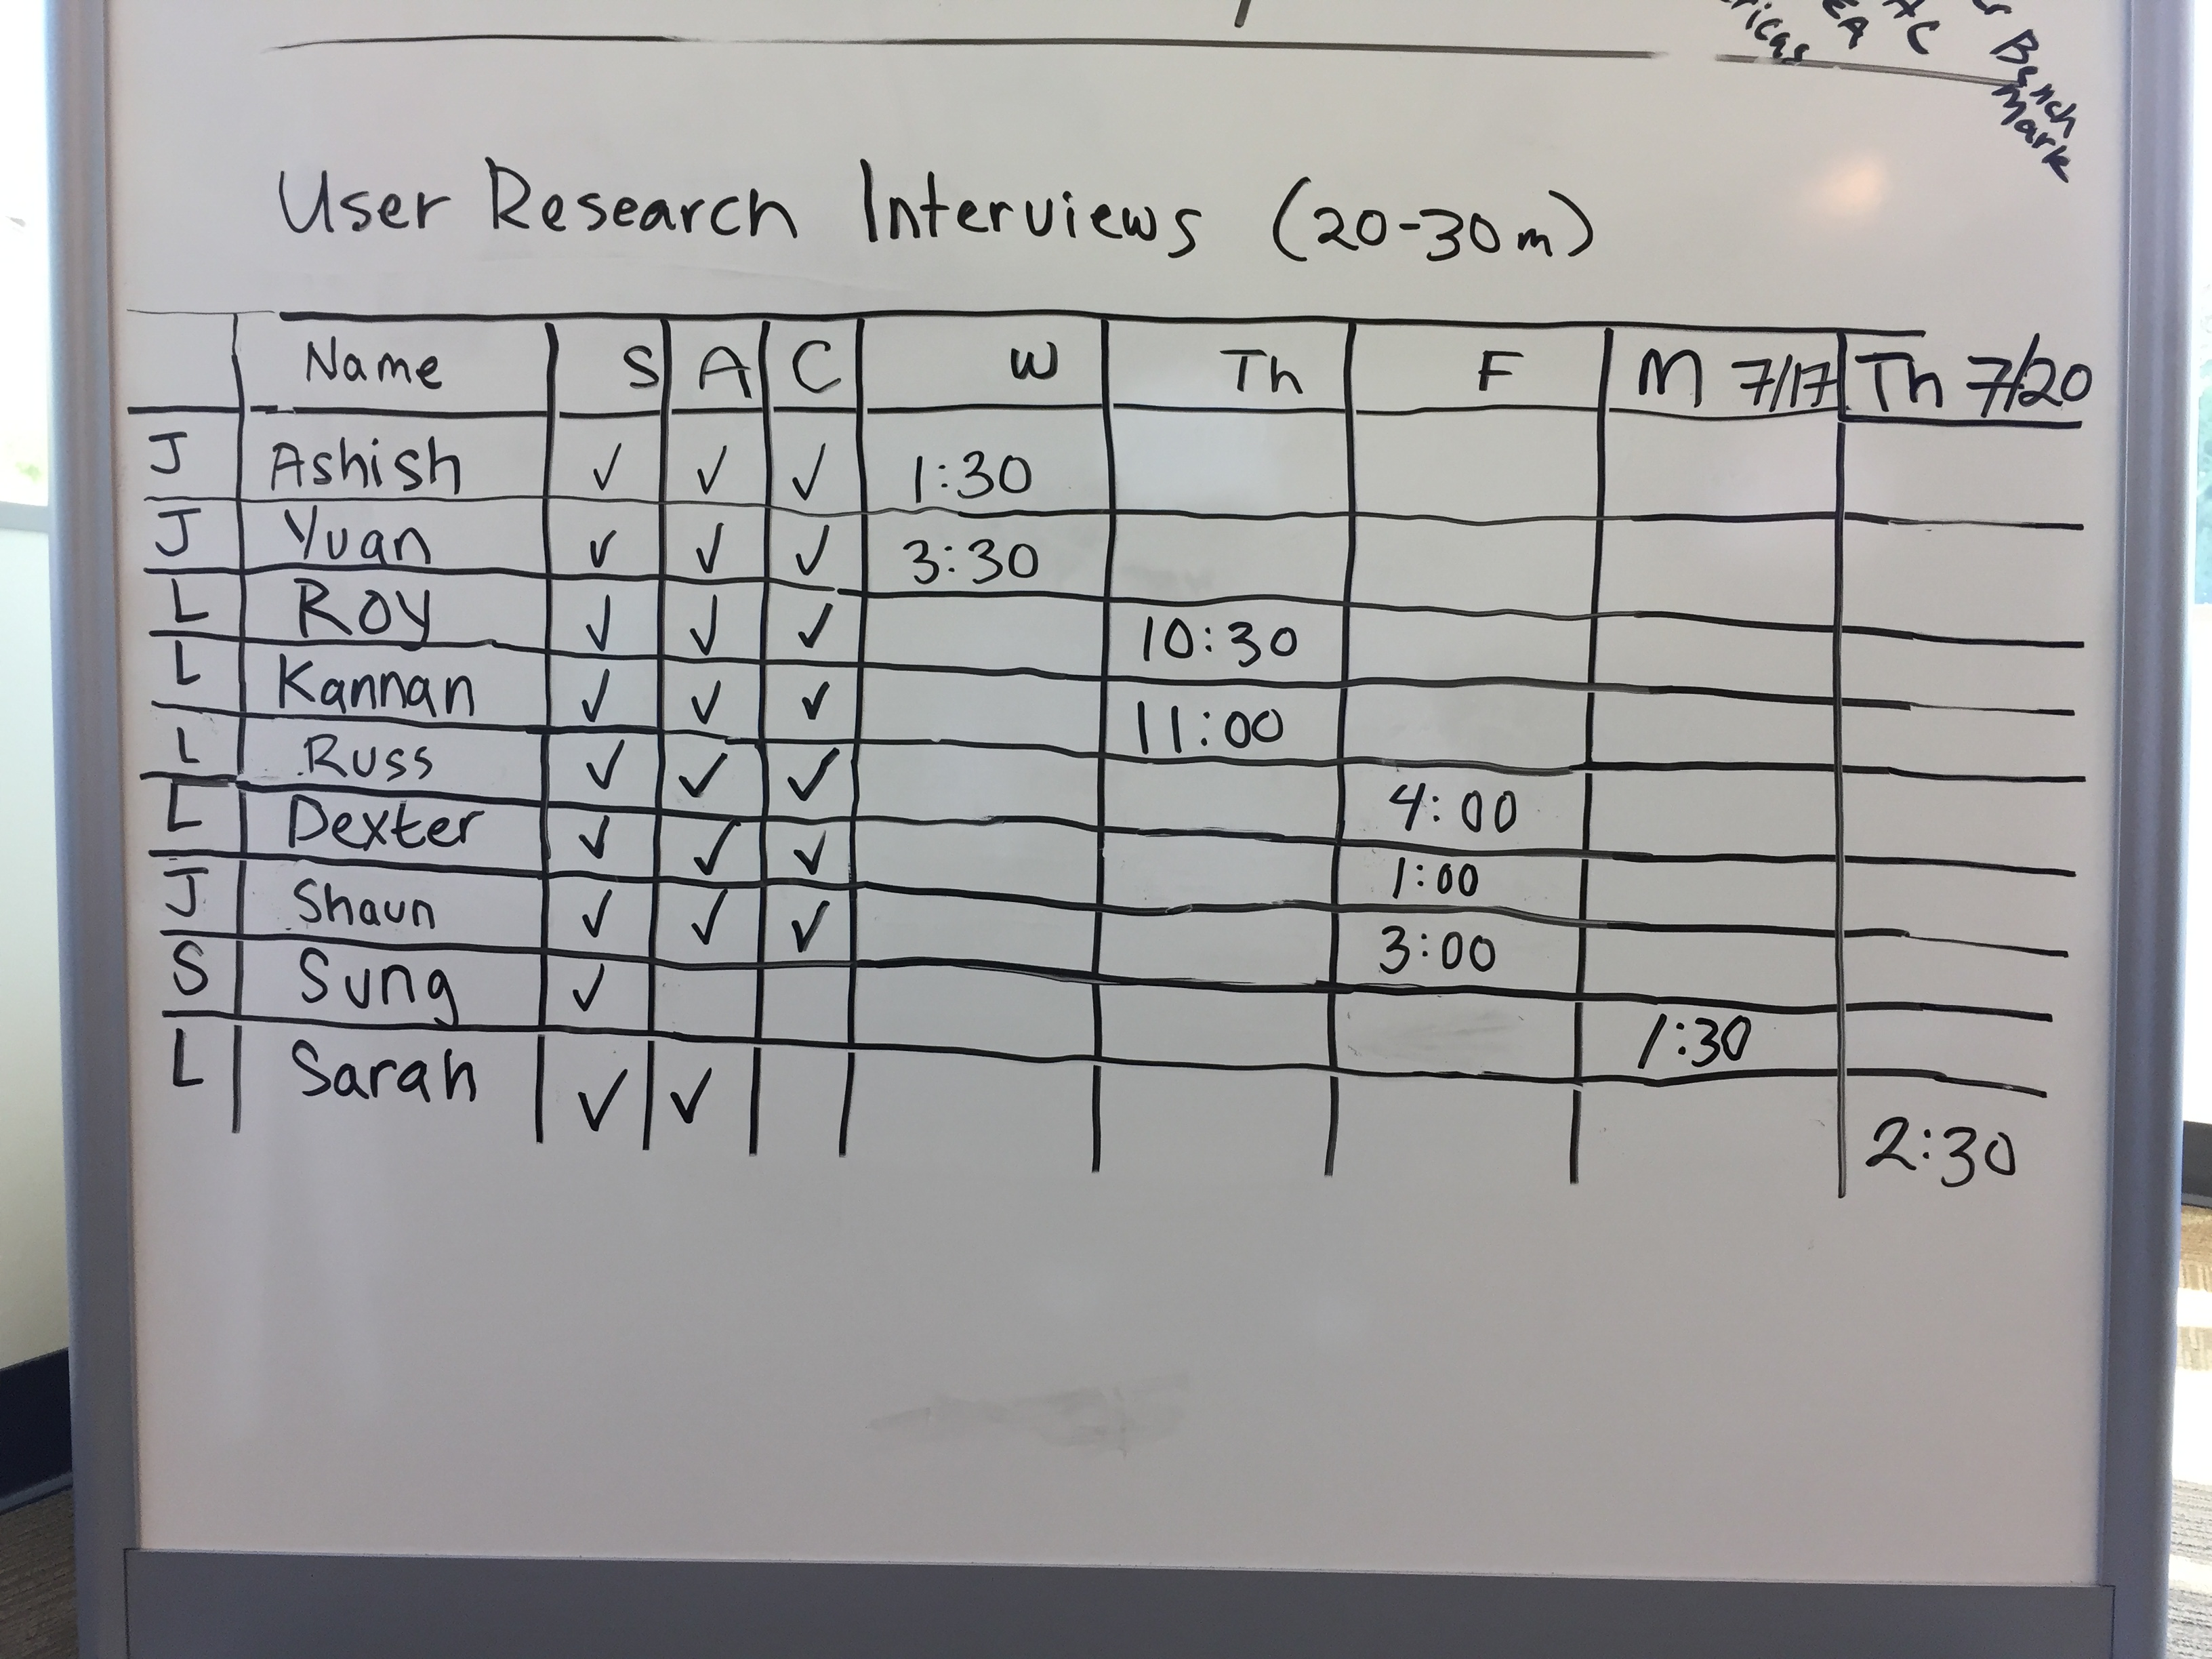 Bench
Mark
User Research Interviews (20-30m)
Name S A C W Th F M 7/17 Th 7/20
J Ashish ✓ ✓ ✓ 1:30
J Yuan ✓ ✓ ✓ 3:30
L Roy ✓ ✓ ✓ 10:30
L Kannan ✓ ✓ ✓ 11:00
L Russ ✓ ✓ ✓ 4:00
L Dexter ✓ ✓ ✓ 1:00
J Shaun ✓ ✓ ✓ 3:00
S Sung ✓ 1:30
L Sarah ✓ ✓ 2:30